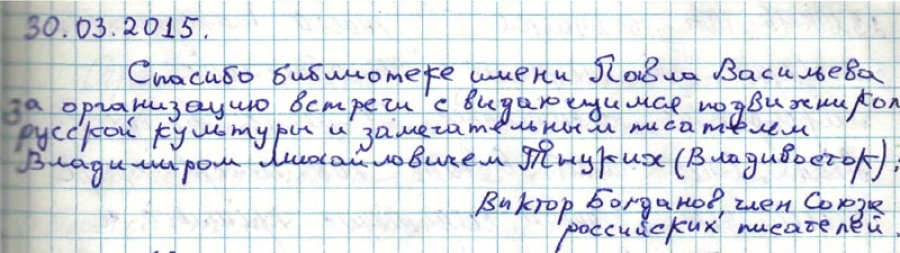 30.03.2015.
Спасибо библиотеке имени Павла Васильева
за организацию встречи с выдающимся подвижником
русской культуры и замечательным писателем
Владимиром Михайловичем Тыцких (Владивосток).
Виктор Богданов, член Союза
российских писателей.